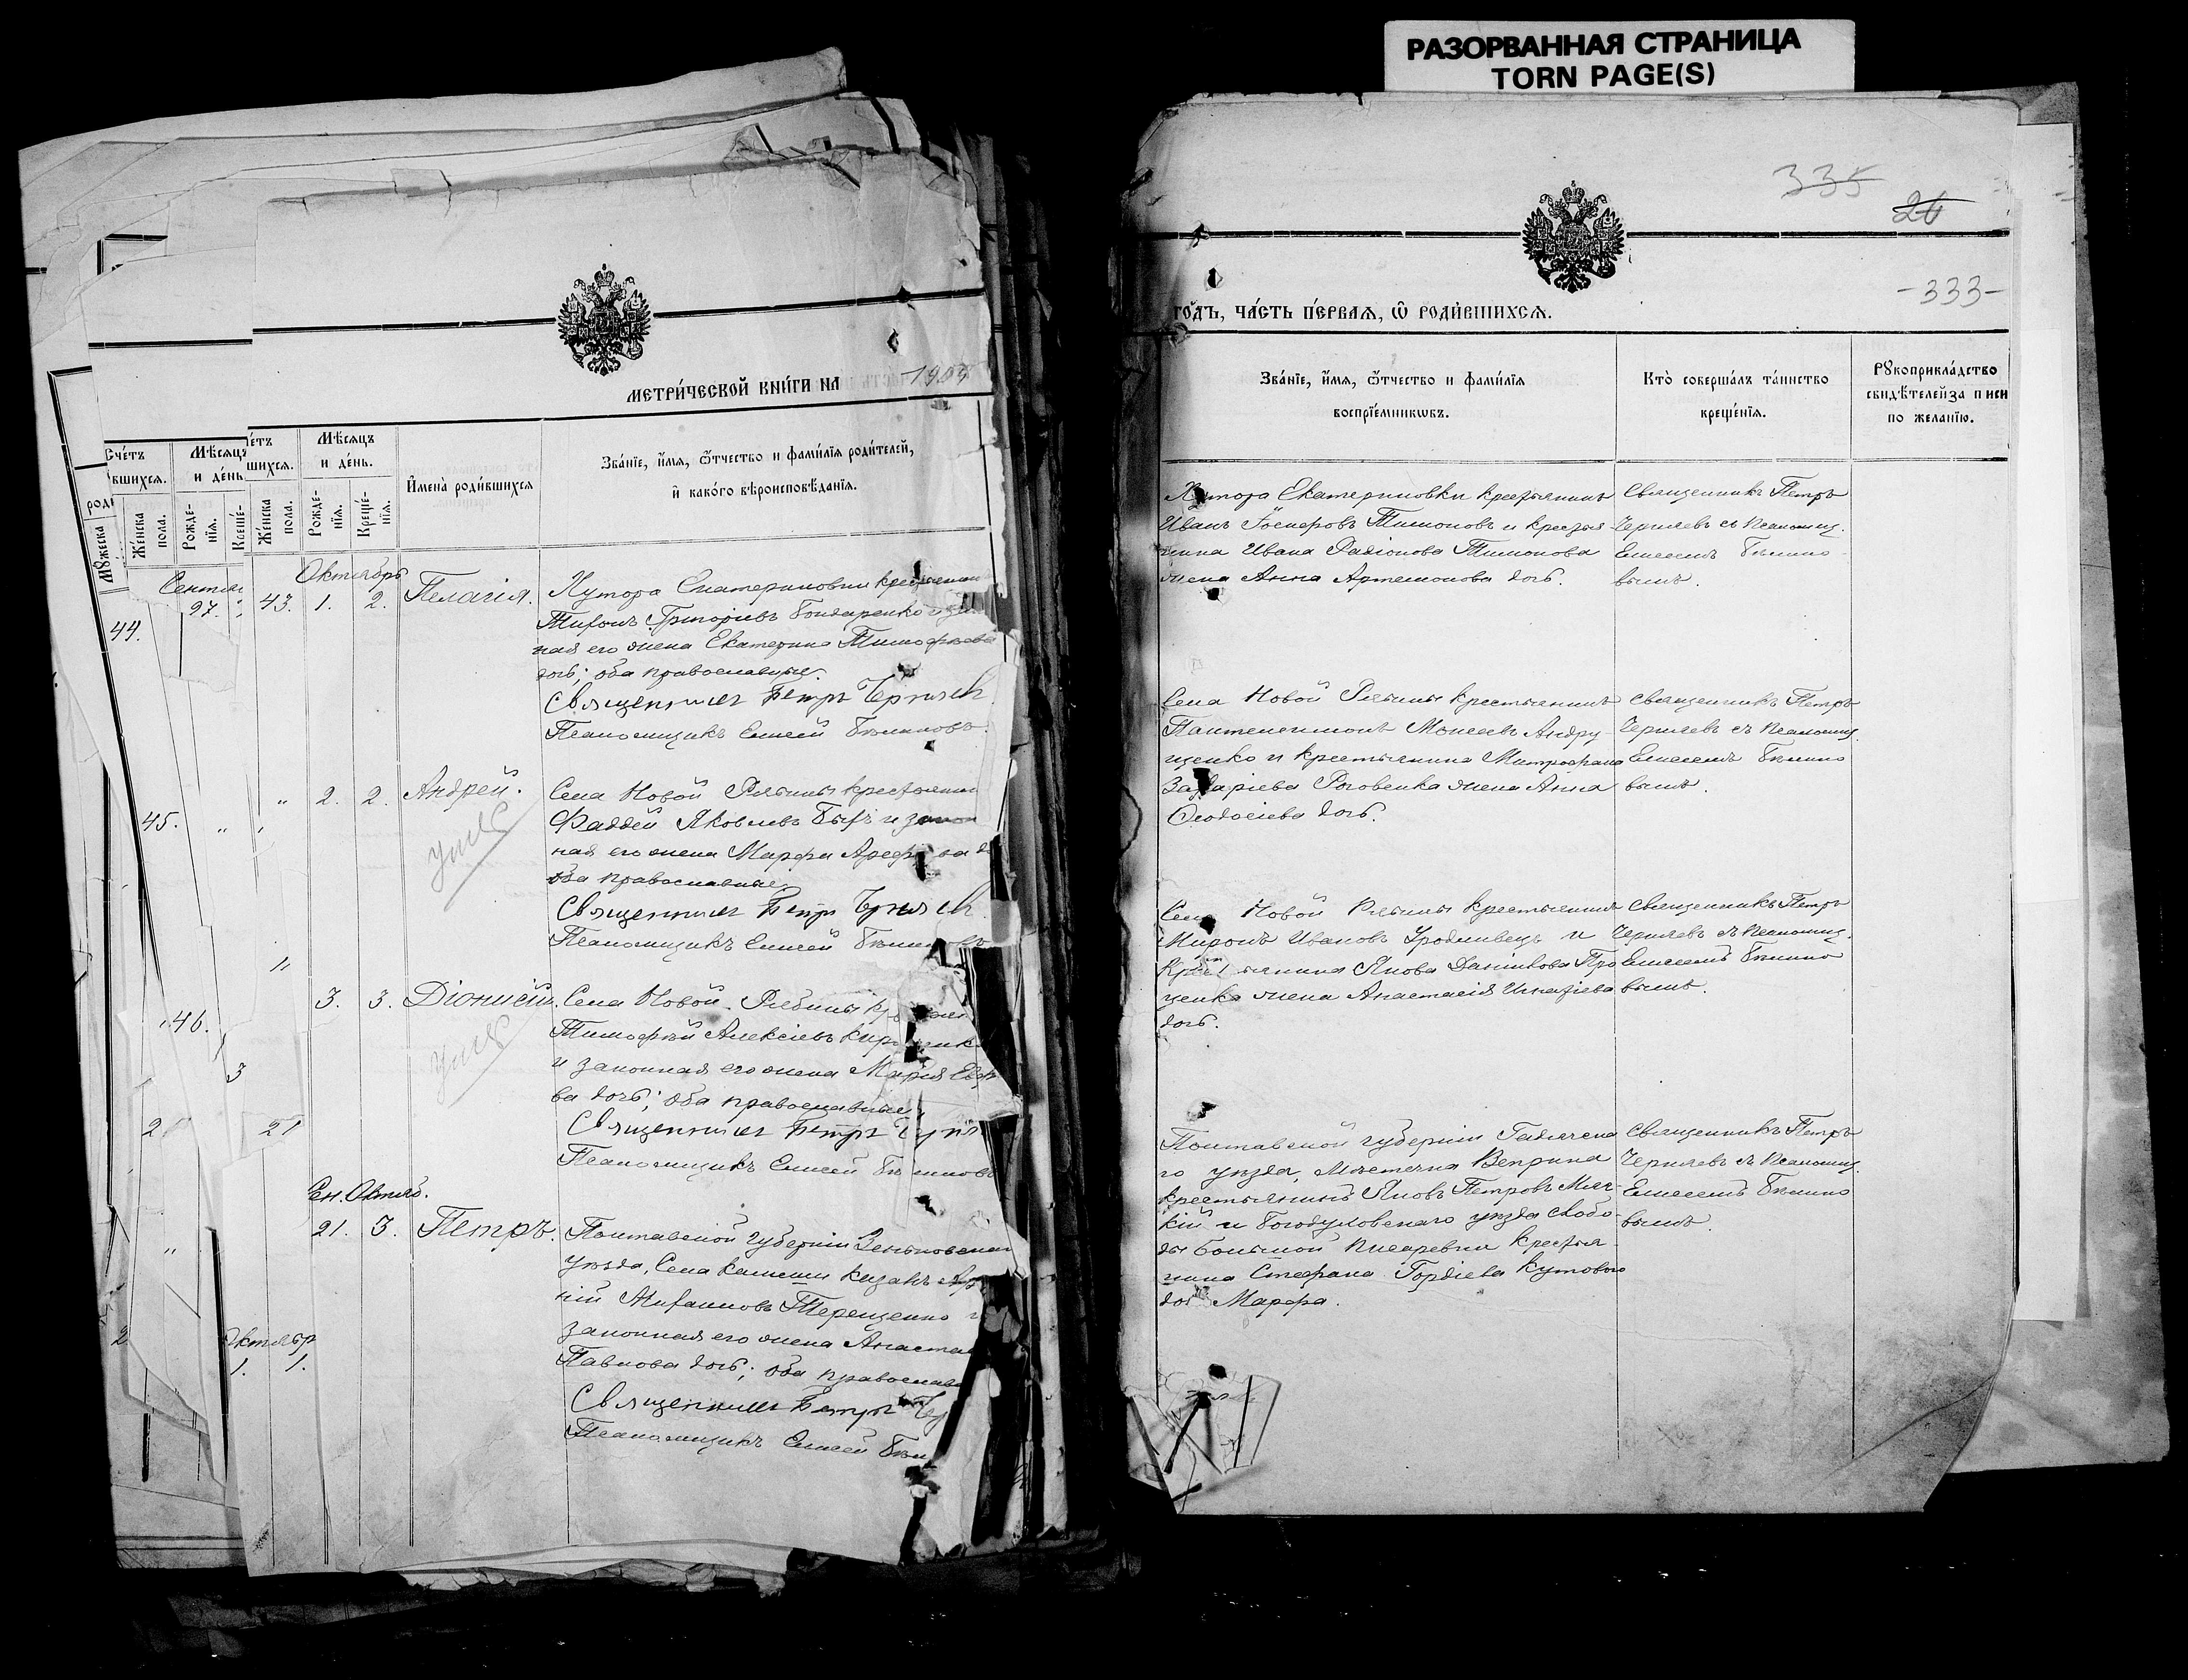 РАЗОРВАННАЯ СТРАНИЦА
TORN PAGE(S)
МЕТРИ́ЧЕСКОЙ КНИ́ГИ НА 1905
Счётъ
вшихся.
роди
Мꙋжеска
Же́нска
пола.
Мѣсяцъ
и де́нь
Рожде-
нія.
Креще́-
ётъ
шихся.
Же́нска
пола.
Мѣсяцъ
и де́нь.
Рожде-
нія.
Креще́-
нія.
И҆мена̀ роди́вшихся
Зва́нїе, и҆́мя, ѻ҆́тчество и фами́лїя роди́телей,
и҆ како́го вѣроисповѣ́данїя.
Октябрь
43. 1. 2. Пелагія.
Хутора Екатериновки крестьянин
Тихонъ Григоріевъ Бондаренко и
ная его жена Екатерина Тимофѣева
дочь; оба православные.
Священникъ Петръ Черняевъ
Псаломщикъ Елисей Бѣлиновъ.
" 2. 2. Андрей.
Села Новой Рябины крестьянин
Фаддей Яковлевъ Быхъ и закон
ная его жена Марфа
оба православные
Священникъ Петръ Черняевъ
Псаломщикъ Елисей
умеръ
" 3. 3. Діонисій.
Села Новой Рябины
Тимофѣй Алексіевъ
и законная его жена Марія
ва дочь; оба православные
Священникъ Петръ
Псаломщикъ Елисей
умеръ
Сен. Октяб.
21. 3. Петръ.
Полтавской губерніи Зеньковскаго
уѣзда, Села Камыши казакъ
ній Михаиловъ Терещенко и
законная его жена Анастас
Павлова дочь; оба православ
Священникъ Петръ
Псаломщикъ Елисей
Сентяб
27.
44.
45. "
46.
3
2
21
"
2
Октябр
1. 1.
335
26
-333-
ГО́ДЪ, ЧА́СТЬ ПЕ́РВАЯ, Ѽ РОДИ́ВШИХСЯ.
Зва́нїе, и҆́мя, ѻ҆́тчество и фами́лїя
воспрїе́мникѡвъ.
Кто̀ соверша́лъ та́инство
креще́нїя.
Рꙋкоприкла́дство
свидѣ́телей за писи
по жела́нїю.
Хутора Екатериновки крестьянинъ
Иванъ Тимоновъ и крестья
нина Ивана Радіонова Тимонова
жена Анна Артемонова дочь.
Священникъ Петръ
Черняевъ съ Псаломщ.
Елисеемъ Бѣлино
вымъ.
Села Новой Рябины крестьянинъ
Пантелеимонъ Моисеевъ Андру
щенко и крестьянина Митрофана
Захаріева Роговенка жена Анна
Ѳеодосіева дочь.
Священникъ Петръ
Черняевъ съ Псаломщ.
Елисеемъ Бѣлино
вымъ.
Села Новой Рябины крестьянинъ
Миронъ Ивановъ Уродливецъ и
крестьянина Якова Данилова Про
ценко жена Анастасія Игнатіева
дочь.
Священникъ Петръ
Черняевъ съ Псаломщ.
Елисеемъ Бѣлино
вымъ.
Полтавской губерніи Гадячска
го уѣзда, Мѣстечка Веприка
крестьянинъ Яковъ Петровъ
кій и Богодуховскаго уѣзда слобо
ды Большой Писаревки крестья
нина Стефана Гордіева Кутоваго
дочь Марфа.
Священникъ Петръ
Черняевъ съ Псаломщ.
Елисеемъ Бѣлино
вымъ.